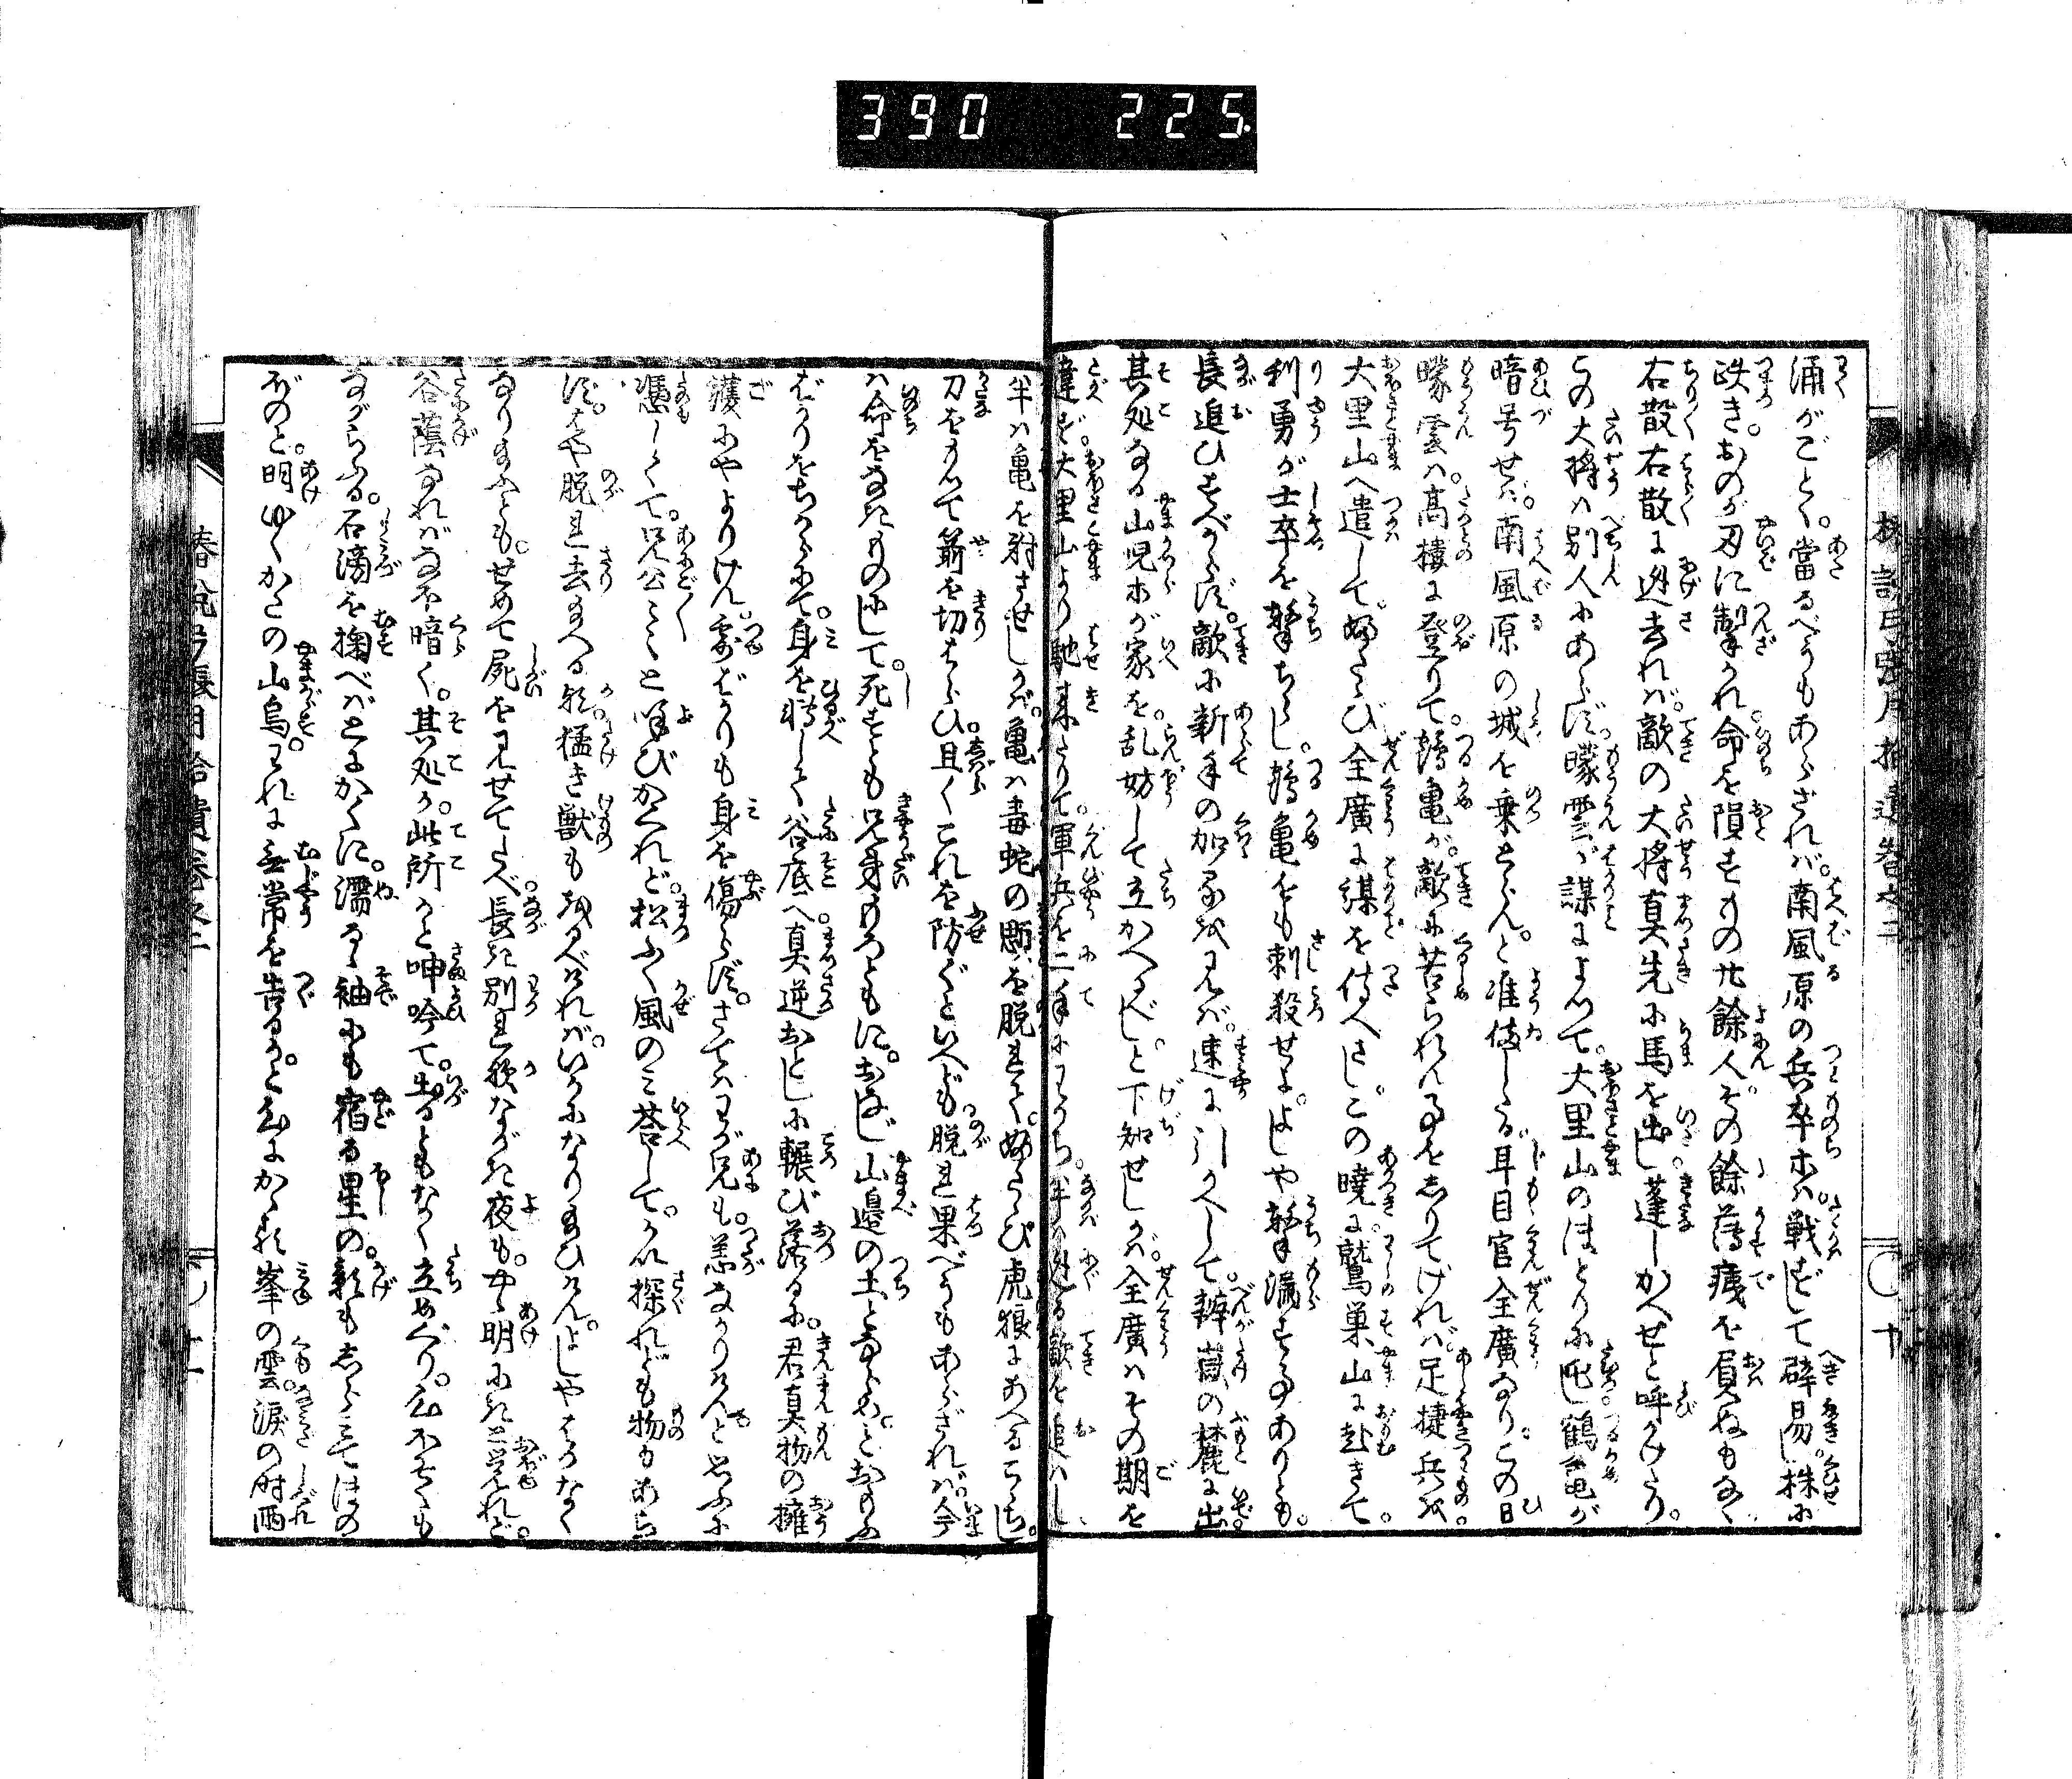 390 225
涌がごとく。當るべうもあらざれば。南風原の兵卒ホは。戦ずして辟易し。株に
跌き。おのが刃に劈かれ。命を隕すもの廿餘人。その餘薄痍を負ぬもなく。
右散右散に迯去れば。敵の大将真先に馬を出し。蓬しかへせと呼かけたり。
この大将は別人にあらず。曚雲が謀によつて。大里山のほとりに屯し。鶴亀が
暗号せば。南風原の城を乗とらんと。准備したる耳目官全廣なり。この日
曚雲は。高樓に登りて。鶴亀が。敵に苦られん事をしりてければ。足捷兵を。
大里山へ遣して。ふたゝび全廣に謀を傳へさし。この暁に。鷲巣山に赴きて。
利勇が士卒を撃ちらし。鶴亀をも刺殺せよ。よしや撃漏す事ありとも。
長追ひすべからず。敵に新手の加るを見ば。速に引かへして。辨嶽の麓に出。
其処なる山児ホが家を。乱妨して立かへるべしと下知せしかば。全廣はその期を
違ず。大里山より馳来りて。軍兵を二手にわかち。半は迯る敵を追はし
半は亀を射させしが。亀は毒蛇の腮を脱れて。ふたゝび虎狼にあへるこゝち。
刀をもて箭を切はらひ。且くこれを防ぐといへども。脱れ果べうもあらざれば。今
は命をなきものにして。死すとも兄弟もろともに。おなじ山邉の土とならん。とおもふ
ばかりをちからにて。身を轉して谷底へ。真逆おとしに輾び落るに。君真物の擁
護にやよりけん。露ばかりも身を傷らず。さてはわが兄も。恙なかりけんと思ふに
憑しくて。兄公々々と呼びかくれど。松ふく風のみ荅して。かい探れども物もあら
ず。はや脱れ去給へる歟。猛き獣もをるべければ。いかになり給ひけん。よしやはかなく
なり給ふとも。せめて屍を見せてたべ。長き別れ歟ながき夜も。やゝ明にきと覚れど。
谷蔭なればなほ暗く。其処か。此所かと呻吟て。出るともなく立めぐり。

ほのと。明ゆくかたの山烏。われに無常を告るか。と心にかゝる峯の雲。涙の時雨